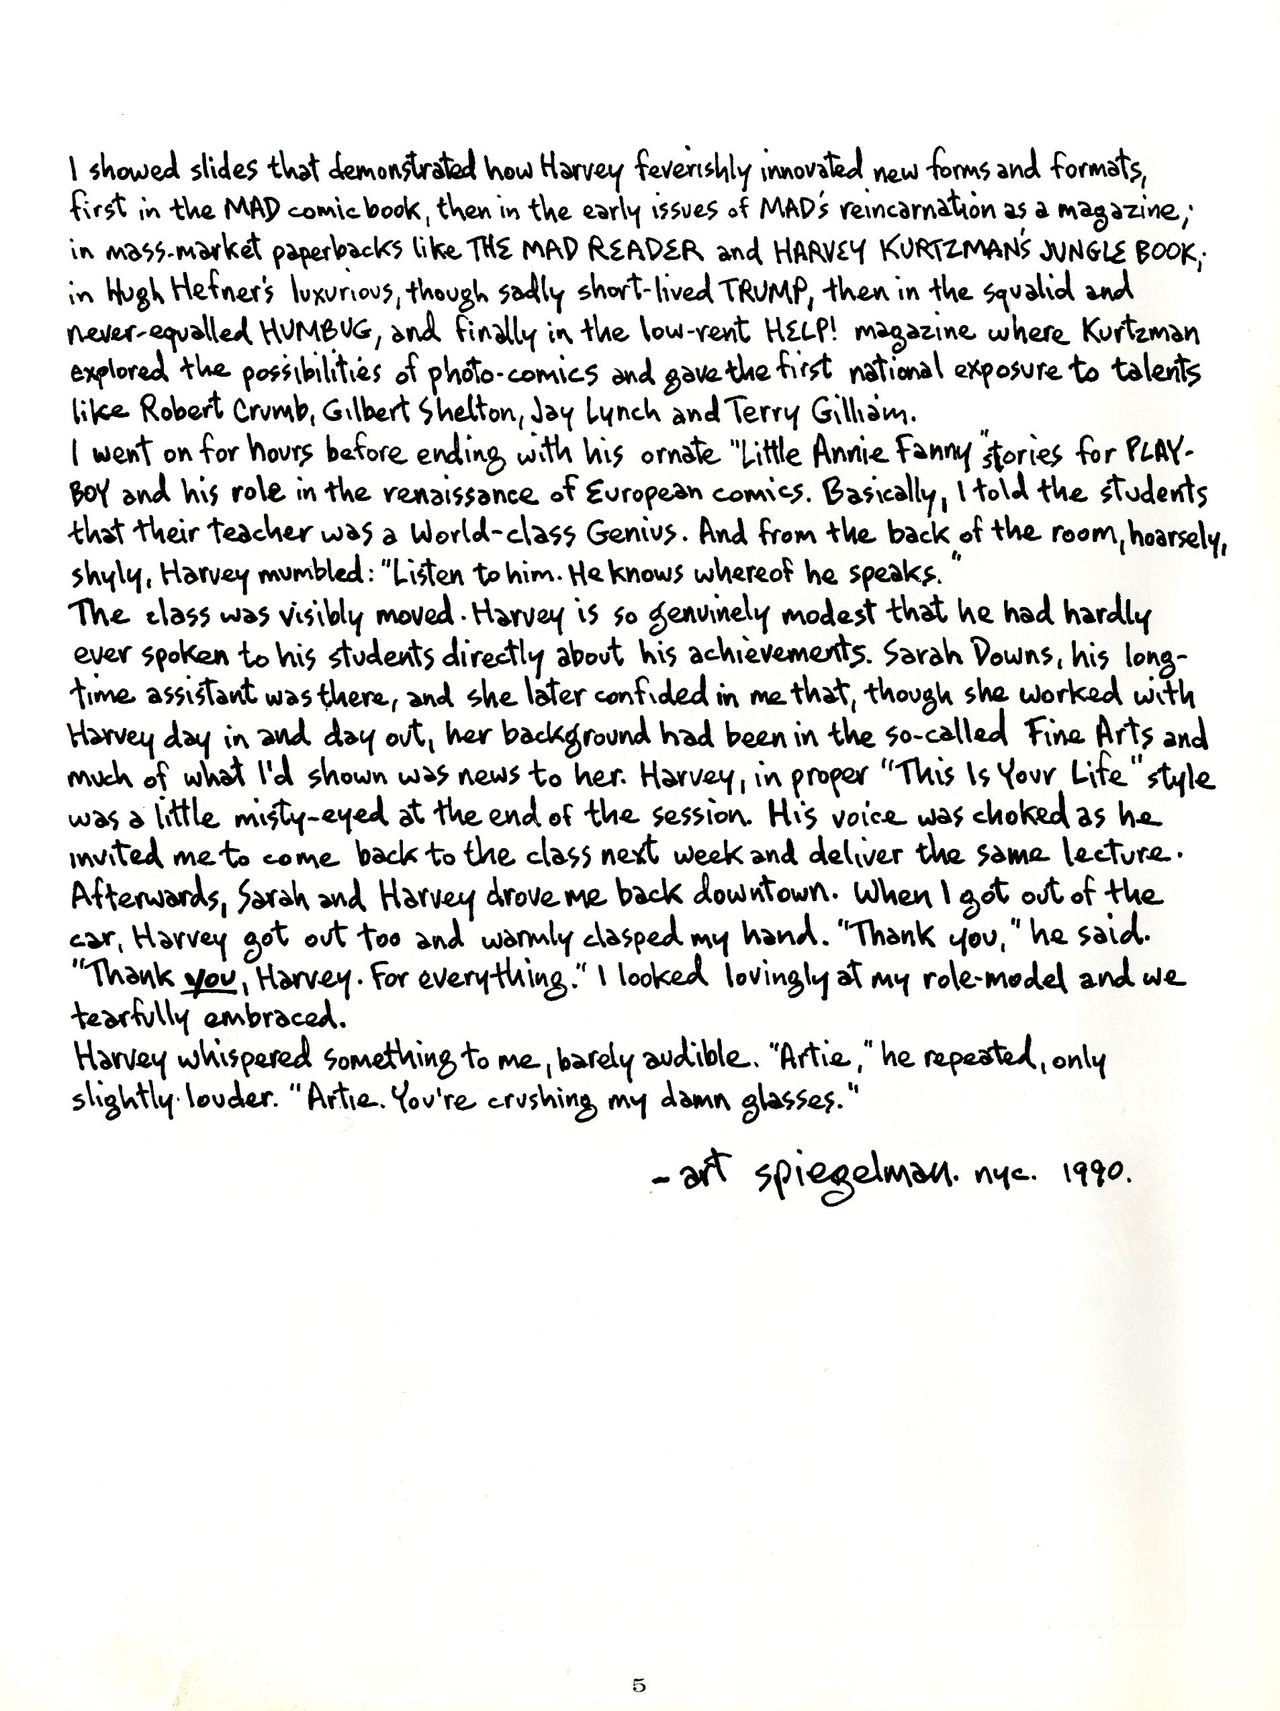 I showed slides that demonstrated how Harvey feverishly innovated new forms and formats,
first in the MAD comic book, then in the early issues of MAD's reincarnation as a magazine;
in mass-market paperbacks like THE MAD READER and HARVEY KURTZMAN'S JUNGLE BOOK;
in Hugh Hefner's luxurious, though sadly short-lived TRUMP, then in the squalid and
never-equalled HUMBUG, and finally in the low-rent HELP! magazine where Kurtzman
explored the possibilities of photo-comics and gave the first national exposure to talents
like Robert Crumb, Gilbert Shelton, Jay Lynch and Terry Gilliam.
I went on for hours before ending with his ornate "Little Annie Fanny" stories for PLAY-
BOY and his role in the renaissance of European comics. Basically, I told the students
that their teacher was a World-class Genius. And from the back of the room, hoarsely,
shyly, Harvey mumbled: "Listen to him. He knows whereof he speaks."
The class was visibly moved. Harvey is so genuinely modest that he had hardly
ever spoken to his students directly about his achievements. Sarah Downs, his long-
time assistant was there, and she later confided in me that, though she worked with
Harvey day in and day out, her background had been in the so-called Fine Arts and
much of what I'd shown was news to her. Harvey, in proper "This Is Your Life" style
was a little misty-eyed at the end of the session. His voice was choked as he
invited me to come back to the class next week and deliver the same lecture.
Afterwards, Sarah and Harvey drove me back downtown. When I got out of the
car, Harvey got out too and warmly clasped my hand. "Thank you," he said.
"Thank you, Harvey. For everything." I looked lovingly at my role-model and we
tearfully embraced.
Harvey whispered something to me, barely audible. "Artie," he repeated, only
slightly louder. "Artie. You're crushing my damn glasses."
– art spiegelman. nyc. 1990.
5